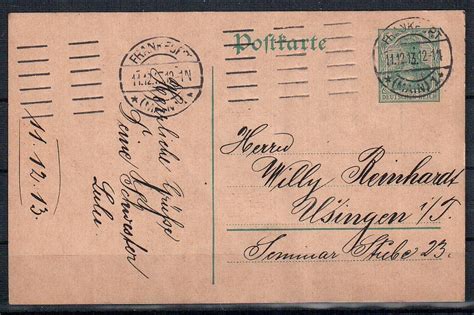 Postkarte
FRANKFURT
11.12.13.12-1N
*(MAIN)1*
FRANKFURT
11.12.13.12-1N
*(MAIN)1*
DEUTSCHES REICH
Herrn
Willy Reinhardt
Usingen i/T.
Seminar Stube 23.
Herzliche Grüße
Deine Schwester
11.12.13.